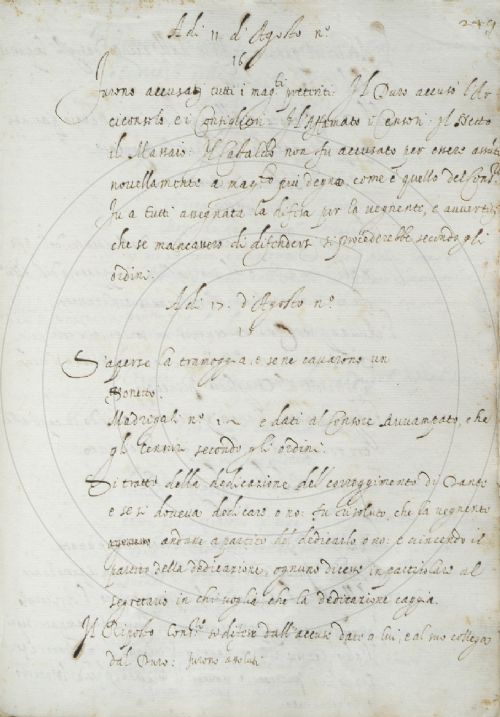 249
A di 11 d'Agosto nº.
16
Furono accusati tutti i mag.ti preteriti: Il Duro accusò l'Ar
ciconsolo, e i Consiglieri: l'Affamato i Censori: il Secco
il Massaio: Il non fu accusato per essere
novellamente a mag.to più degno, come è quello del Cons.
Fu a tutti assegnata la difesa per la vegnente, e avvertito
che se mancavero di difendersi si procederebbe secondo gli
ordini.
A di 17. d'Agosto nº.
S'aperse la tramoggia, e se ne cavarono un
Sonetto.
Madrigali nº. e dati al Censore Avvampato, che
gli censuri secondo gli ordini.
Si trattò della dedicazione del correggimento di Dante
e se si doveva dedicare o no: fu risoluto, che la vegnente
andare a partito del dedicarlo o no: e vincendo il
partito della dedicazione, ognuno dicesse in particolare al
segretario in chi voglia che la dedicazione caggia.
Il Ripolto Cons.re si difese dall'accuse date a lui, e al suo collega
dal Duro: furono assoluti